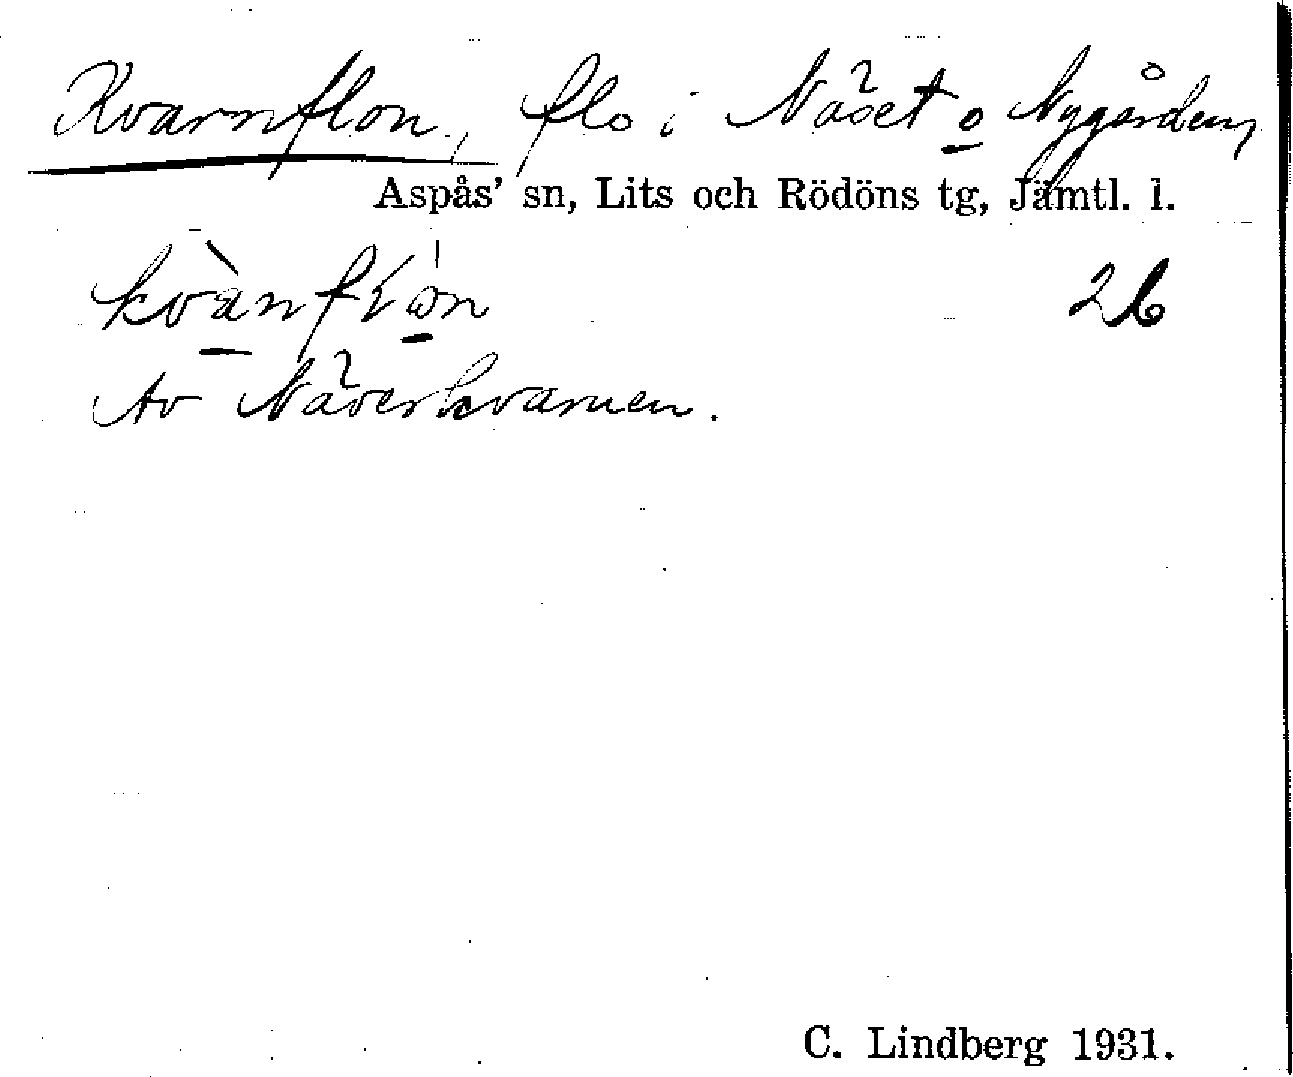 Kvarnflon, flo i Näset o Nygården,
Aspås' sn, Lits och Rödöns tg, Jämtl. l.
26
Av Näverkvarnen.
C. Lindberg 1931.